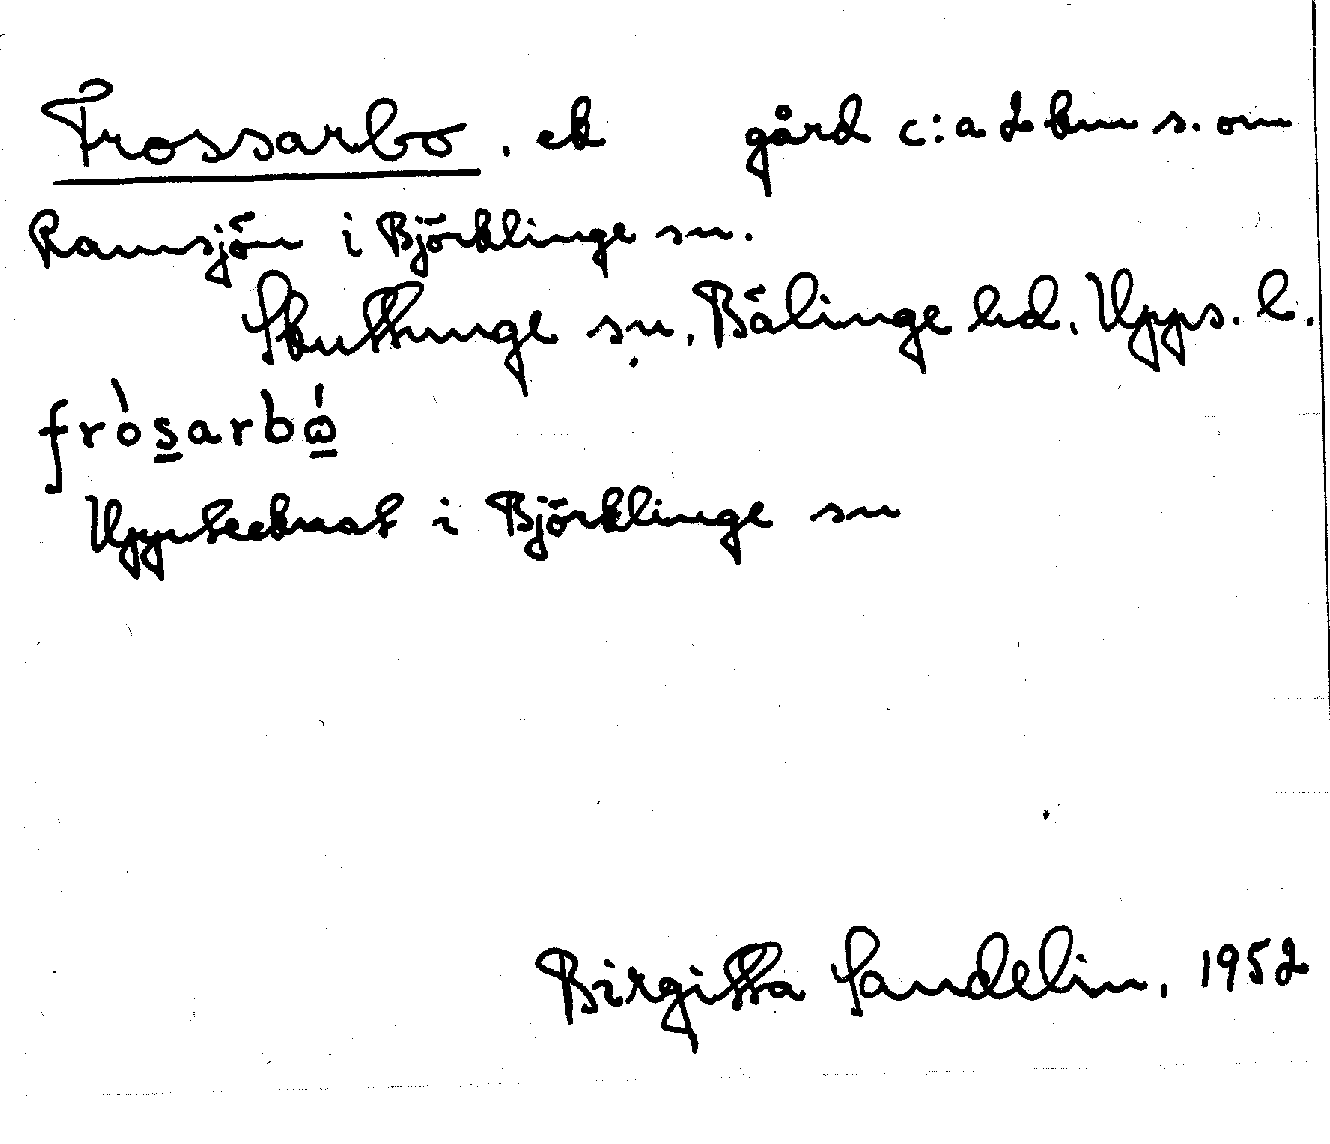 Frossarbo. ek gård c:a 2 km s. om
Ramsjön i Björklinge sn.
Skuttunge sn. Bälinge hd. Upps. l.
fròsarbó
Upptecknat i Björklinge sn
Birgitta Sandelin, 1952